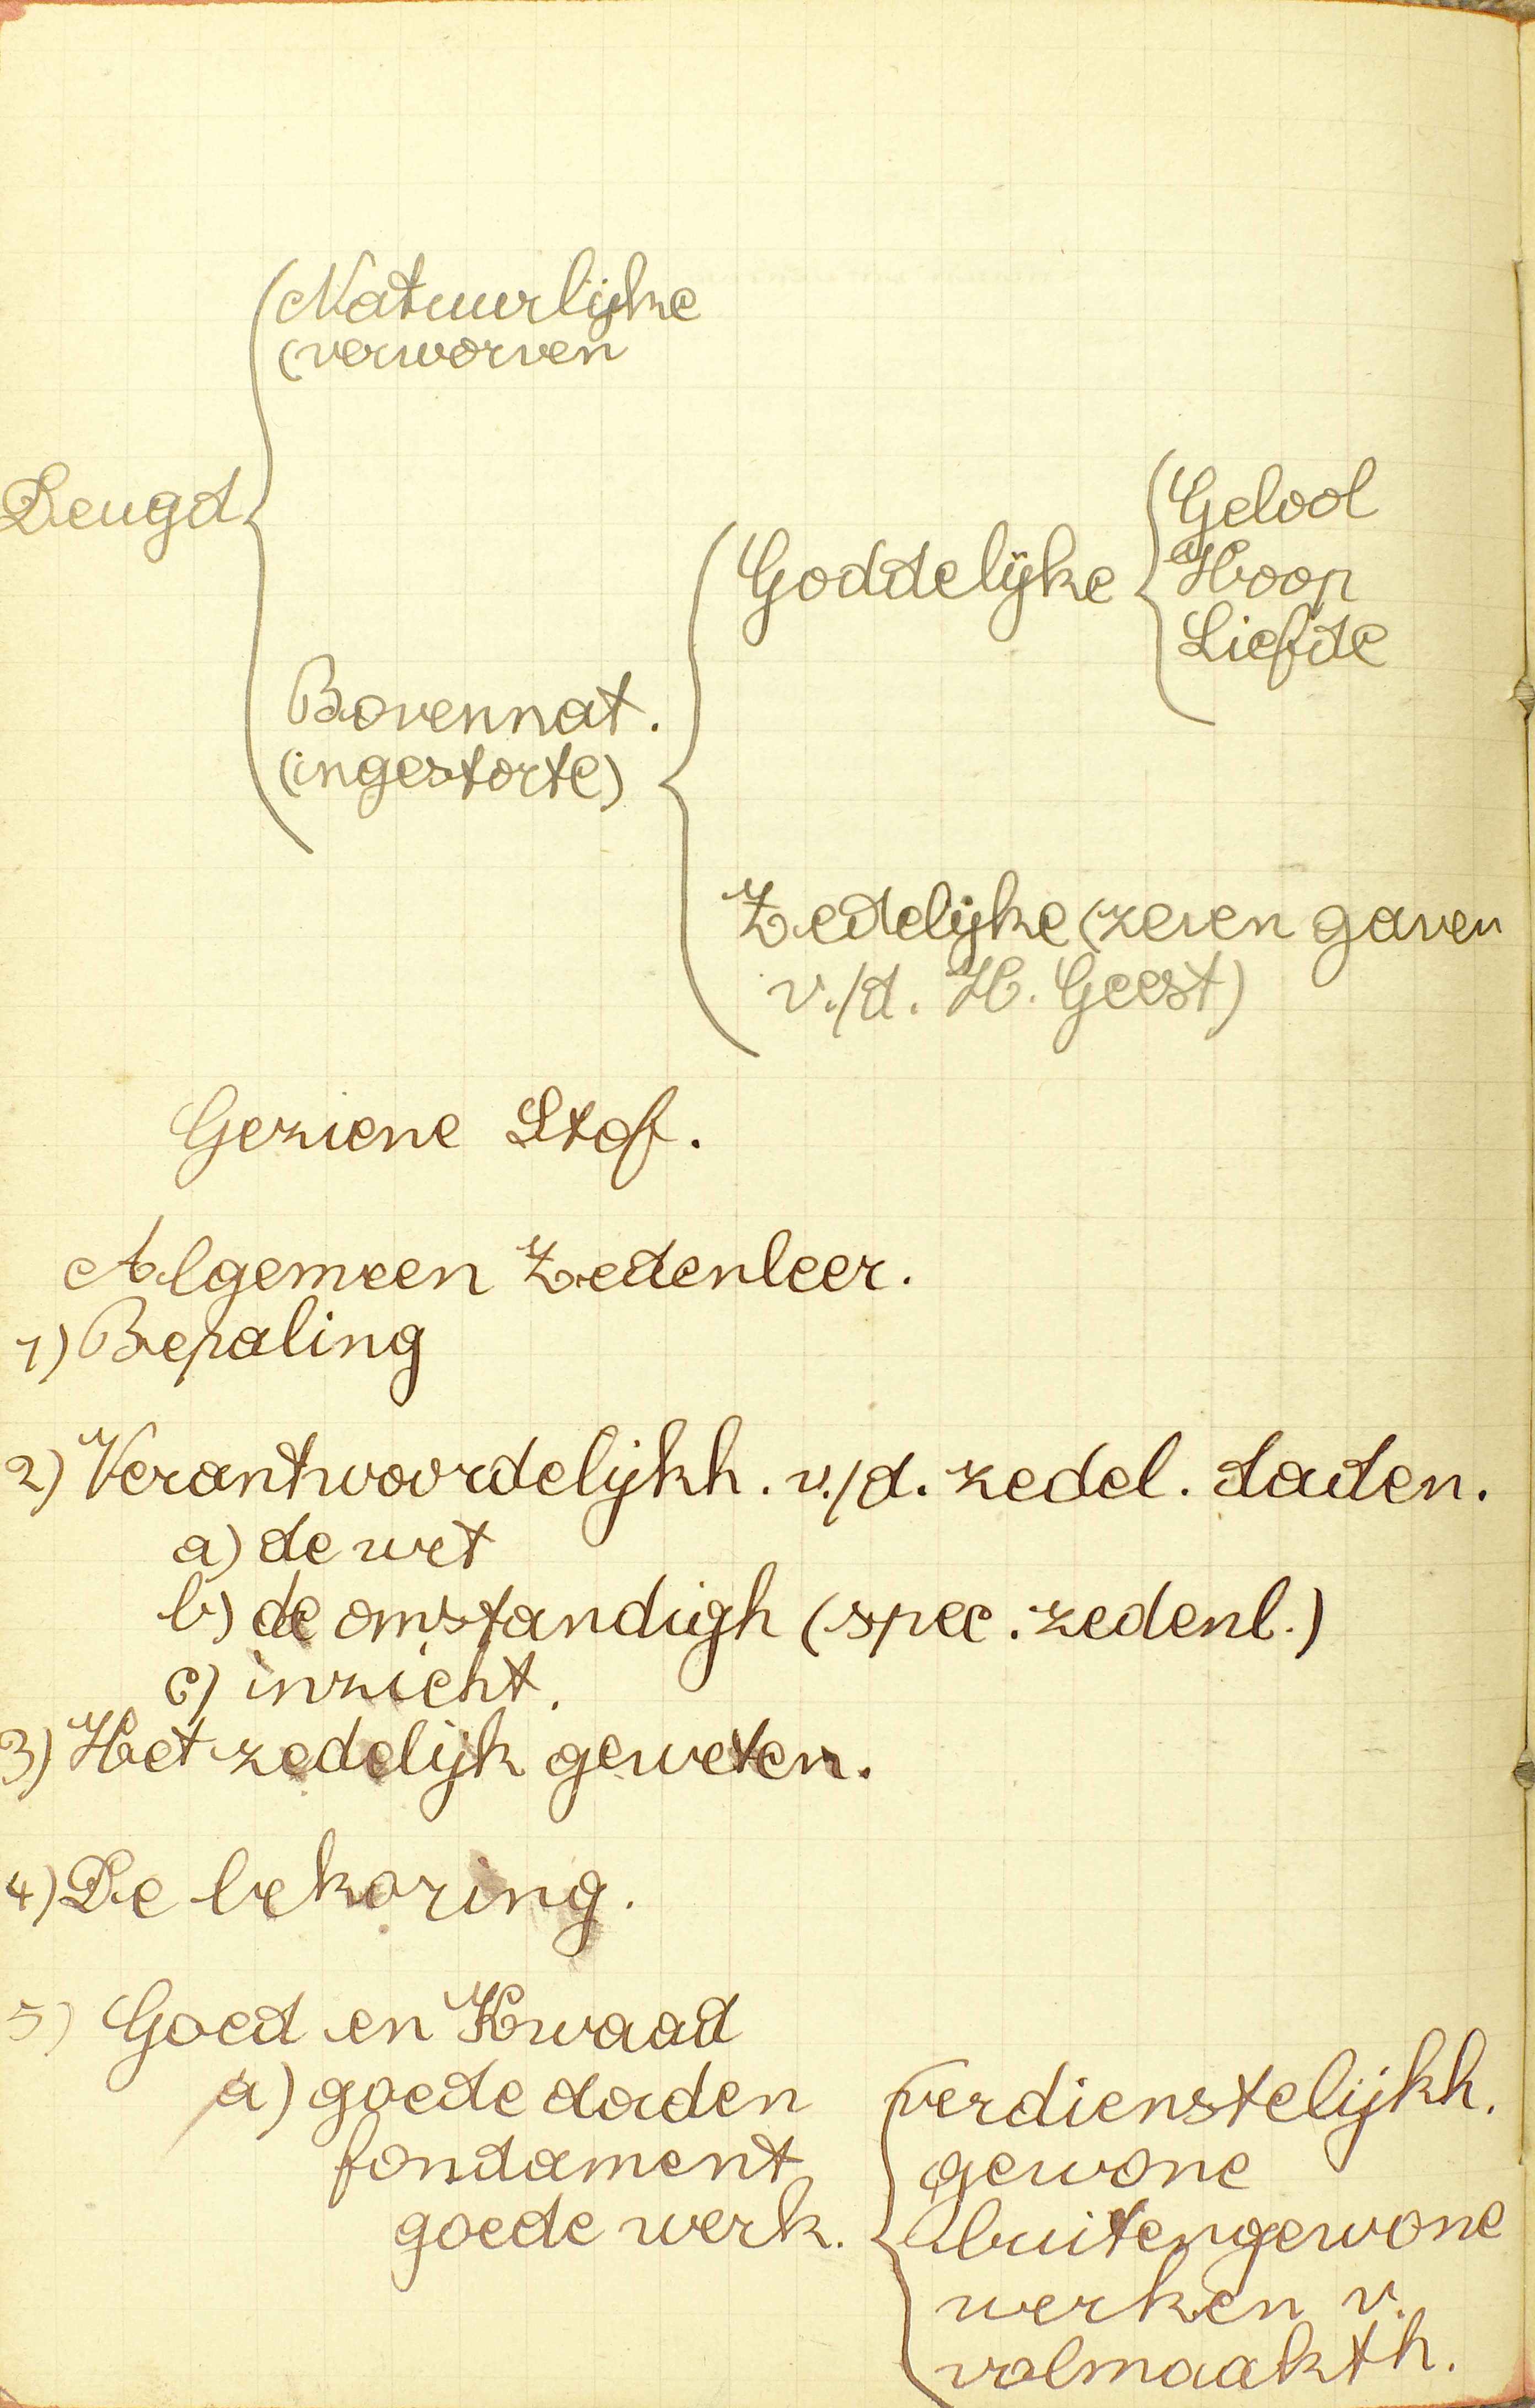 Natuurlijke
(verworven
Deugd
Geloof
Goddelijke
Hoop
Liefde
Bovennat.
(ingestorte)
Zedelijke (zeven gaven
v./d. H. Geest)
Geziene Stof.
Algemeen Zedenleer.
1) Bepaling
2) Verantwoordelijkh. v./d. zedel. daden.
a) de wet
b) de omstandigh (spec. zedenl.)
c) inzicht.
3) Het zedelijk geweten.
4) De bekoring.
5) Goed en Kwaad
a) goede daden
fondament
goede werk.
verdienstelijkh.
gewone
buitengewone
werken v.
volmaakth.